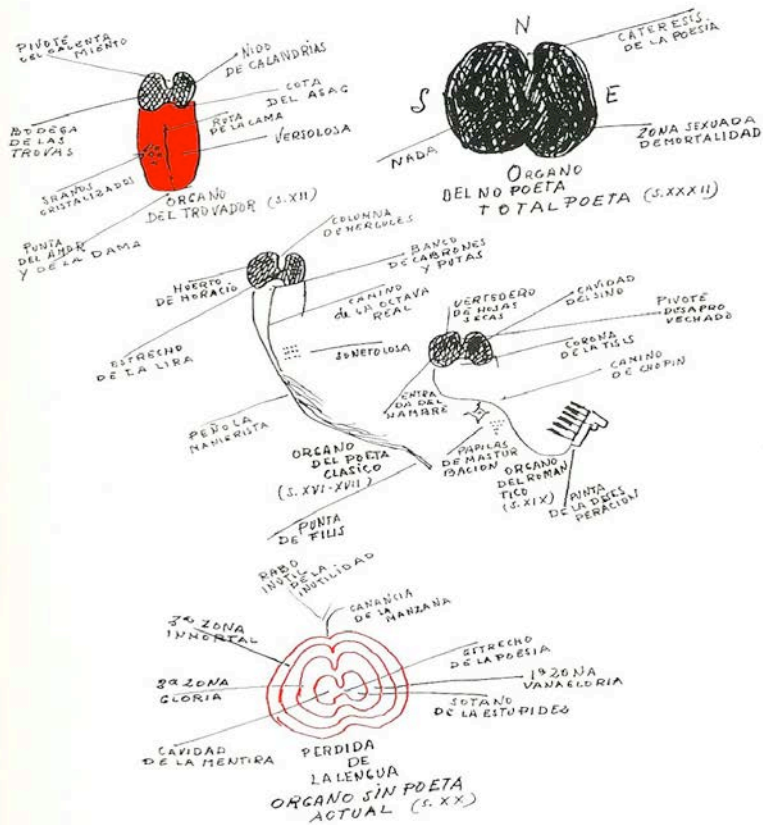 PIVOTE
DEL CALENTA
MIENTO
NIDO
DE CALANDRIAS
COTA
DEL ASAG
RUTA
DE LA CAMA
VERSOLOSA
BODEGA
DE LAS
TROVAS
GRANOS
CRISTALIZADOS
PUNTA
DEL AMOR
Y DE LA DAMA
ORGANO
DEL TROVADOR (S.XII)
N
S
E
CATERESIS
DE LA POESIA
NADA
ZONA SEXUADA
DEMORTALIDAD
ORGANO
DEL NO POETA
TOTAL POETA (S.XXXII)
COLUMNA
DE HERCULES
HUERTO
DE HORACIO
BANCO
DE CABRONES
Y PUTAS
CAMINO
de LA OCTAVA
REAL
ESTRECHO
DE LA LIRA
SONETOLOSA
PEÑOLA
MANIERISTA
ORGANO
DEL POETA
CLASICO
(S.XVI-XVII)
PUNTA
DE FILIS
VERTEDERO
DE HOJAS
SECAS
CAVIDAD
DEL SINO
PIVOTE
DESAPRO
VECHADO
CORONA
DE LA TISIS
CAMINO
DE CHOPIN
ENTRA
DA DEL
HAMBRE
PAPILAS
DE MASTUR
BACION
ORGANO
DEL ROMAN
TICO
(S.XIX)
PUNTA
DE LA DESES
PERACION
RABO
INUTIL
DE LA
INUTILIDAD
CANANCIA
DE LA
MANZANA
3ª ZONA
INMORTAL
ESTRECHO
DE LA POESIA
1ª ZONA
VANAGLORIA
3ª ZONA
GLORIA
SOTANO
DE LA ESTUPIDES
CAVIDAD
DE LA MENTIRA
PERDIDA
DE
LA LENGUA
ORGANO SIN POETA
ACTUAL (S.XX)